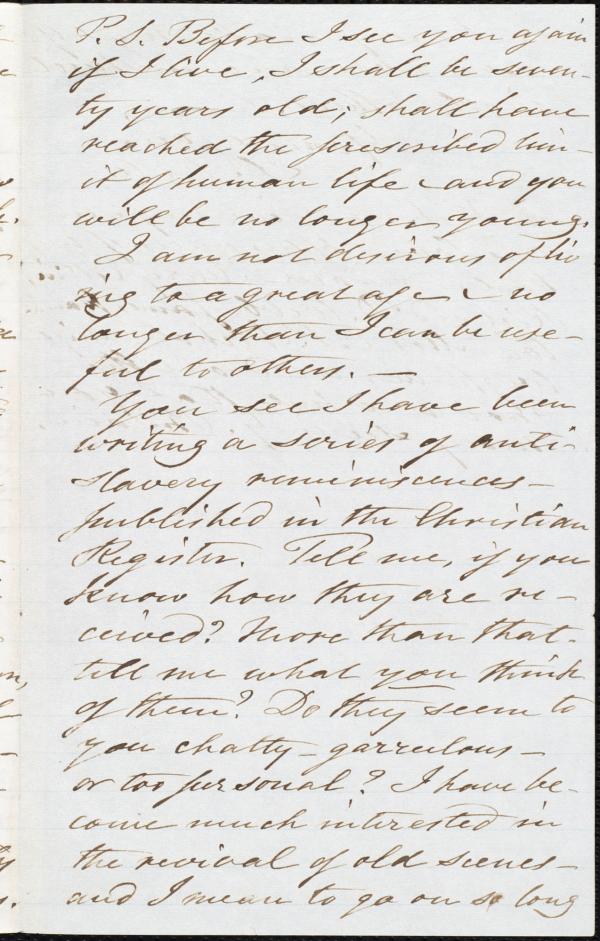 P. S. Before I see you again
if I live, I shall be seven-
ty years old; shall have
reached the prescribed lim-
it of human life - and you
will be no longer young.
I am not desirous of liv
ing to a great age - no
longer than I can be use-
ful to others. —
You see I have been
writing a series of anti-
slavery reminiscences -
published in the Christian
Register. Tell me, if you
know how they are re-
ceived? More than that -
tell me what you think
of them? Do they seem to
you chatty - garrulous -
or too personal? I have be-
come much interested in
the revival of old scenes -
and I mean to go on so long